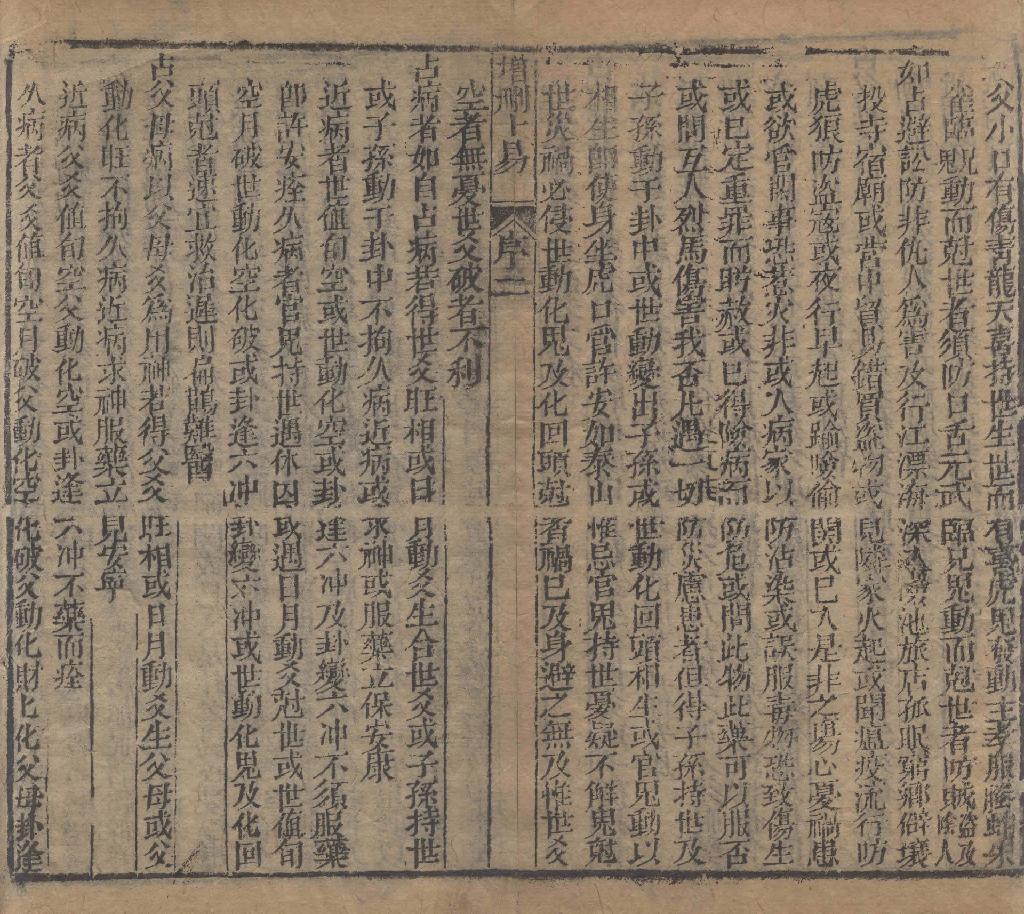 父小口有傷青龍天喜持世生世而有或虎鬼發動主孝服螣蛇朱
雀臨鬼動而剋世者須防口舌元武臨兄鬼動而剋世者防賊盜及陰人
如占避訟防非仇人爲害及行江漂海深入池旅店孤眠窮鄉僻壤
投寺宿廟或營中貿易錯買盜物或見鄰家火起或聞瘟疫流行防
虎狼防盜寇或夜行早起或踰險偷關或已入是非之塲心憂禍患
或欲管閒事恐惹火非或入病家以防沾染或誤服毒物恐致傷生
或已定重罪而盻赦或已得險病而防危或問此物此藥可以服否
或問互人烈馬傷害我否凡遇一切防災慮患者但得子孫持世及
子孫動于卦中或世動變出子孫或世動化回頭相生或官鬼動以
相生卽使身坐虎口管許安如泰山惟忌官鬼持世憂疑不解鬼剋
世災禍必侵世動化鬼及化回頭剋者禍已及身避之無及惟世爻
增刪卜易 序二
空者無憂世爻破者不利
占病者如自占病若得世爻旺相或日月動爻生合世爻或子孫持世
或子孫動于卦中不拘久病近病或求神或服藥立保安康
近病者世值旬空或世動化空或卦逢六冲及卦變六冲不須服藥
卽許安痊久病者官鬼持世遇休囚或遇日月動爻剋世或世值旬
空月破世動化空化破或卦逢六冲卦變六冲或世動化鬼及化回
頭剋者運宜救治遲則扁鵲難醫
占父母病以父母爻爲用神若得父爻旺相或日月動爻生父母或父
動化旺不拘久病近病求神服藥立見安寧
近病父爻值旬空父動化空或卦逢六冲不藥而痊
久病者父爻值旬空月破父動化空化破父動化財化化父母卦逢